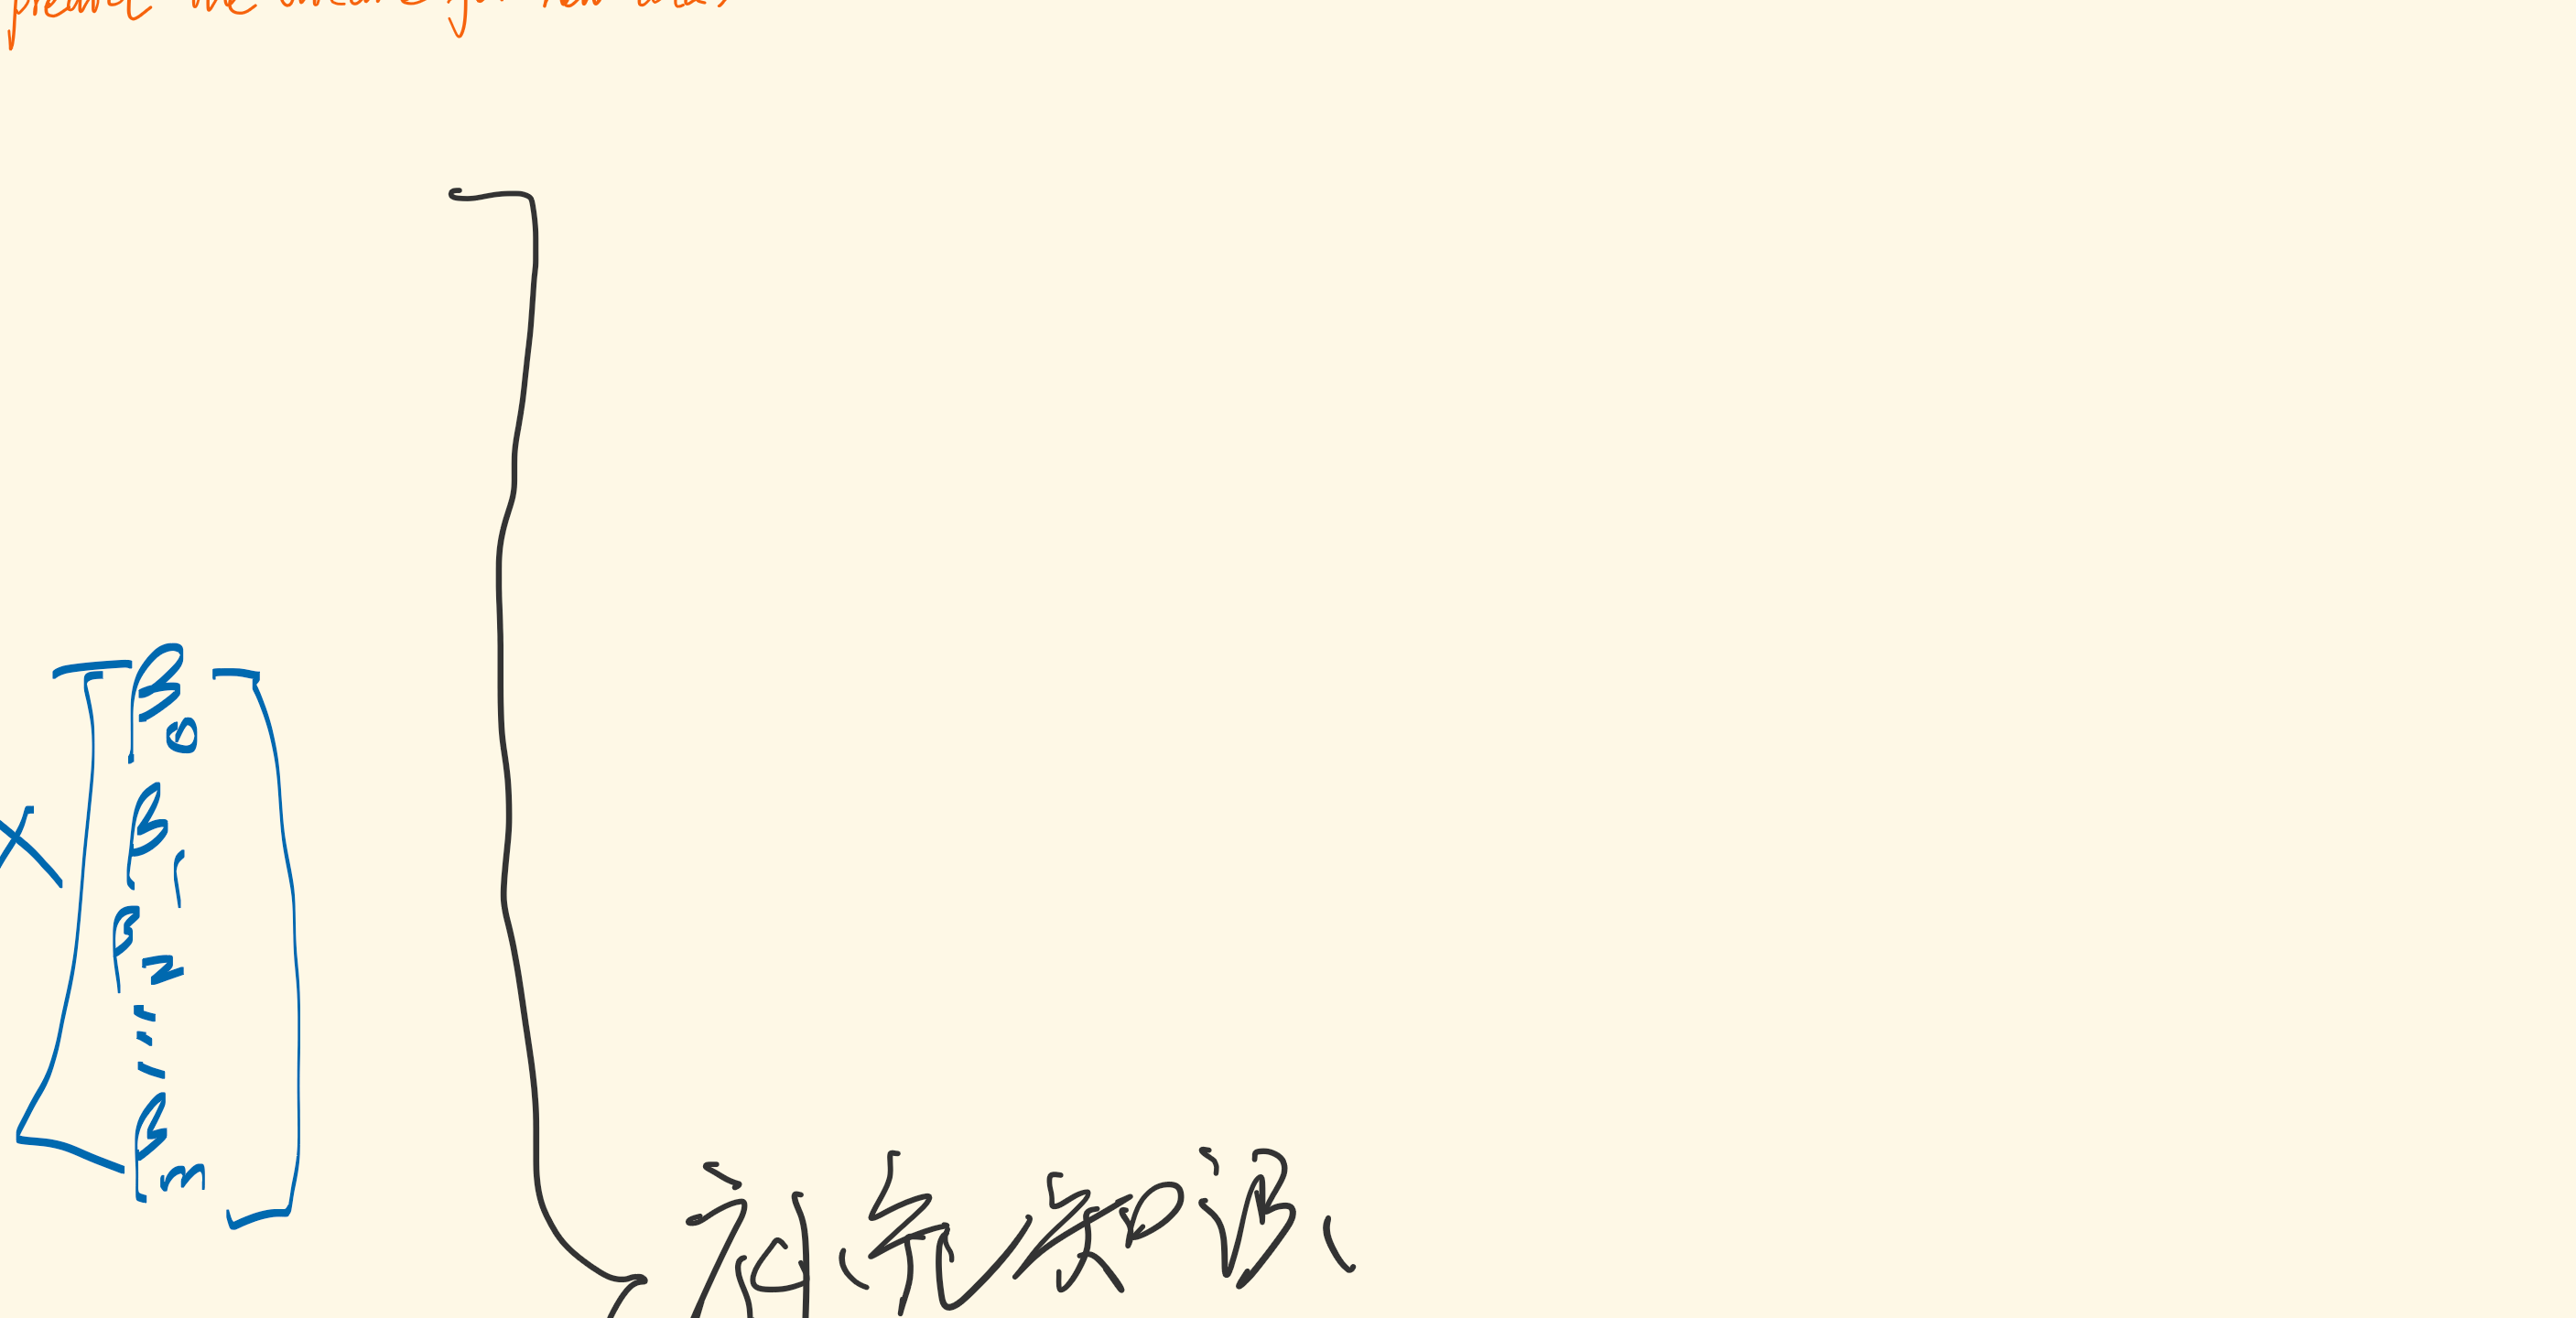 predict the outcome for new data
β₀
×
β₁
β₂
⋮
βₘ
补充知识